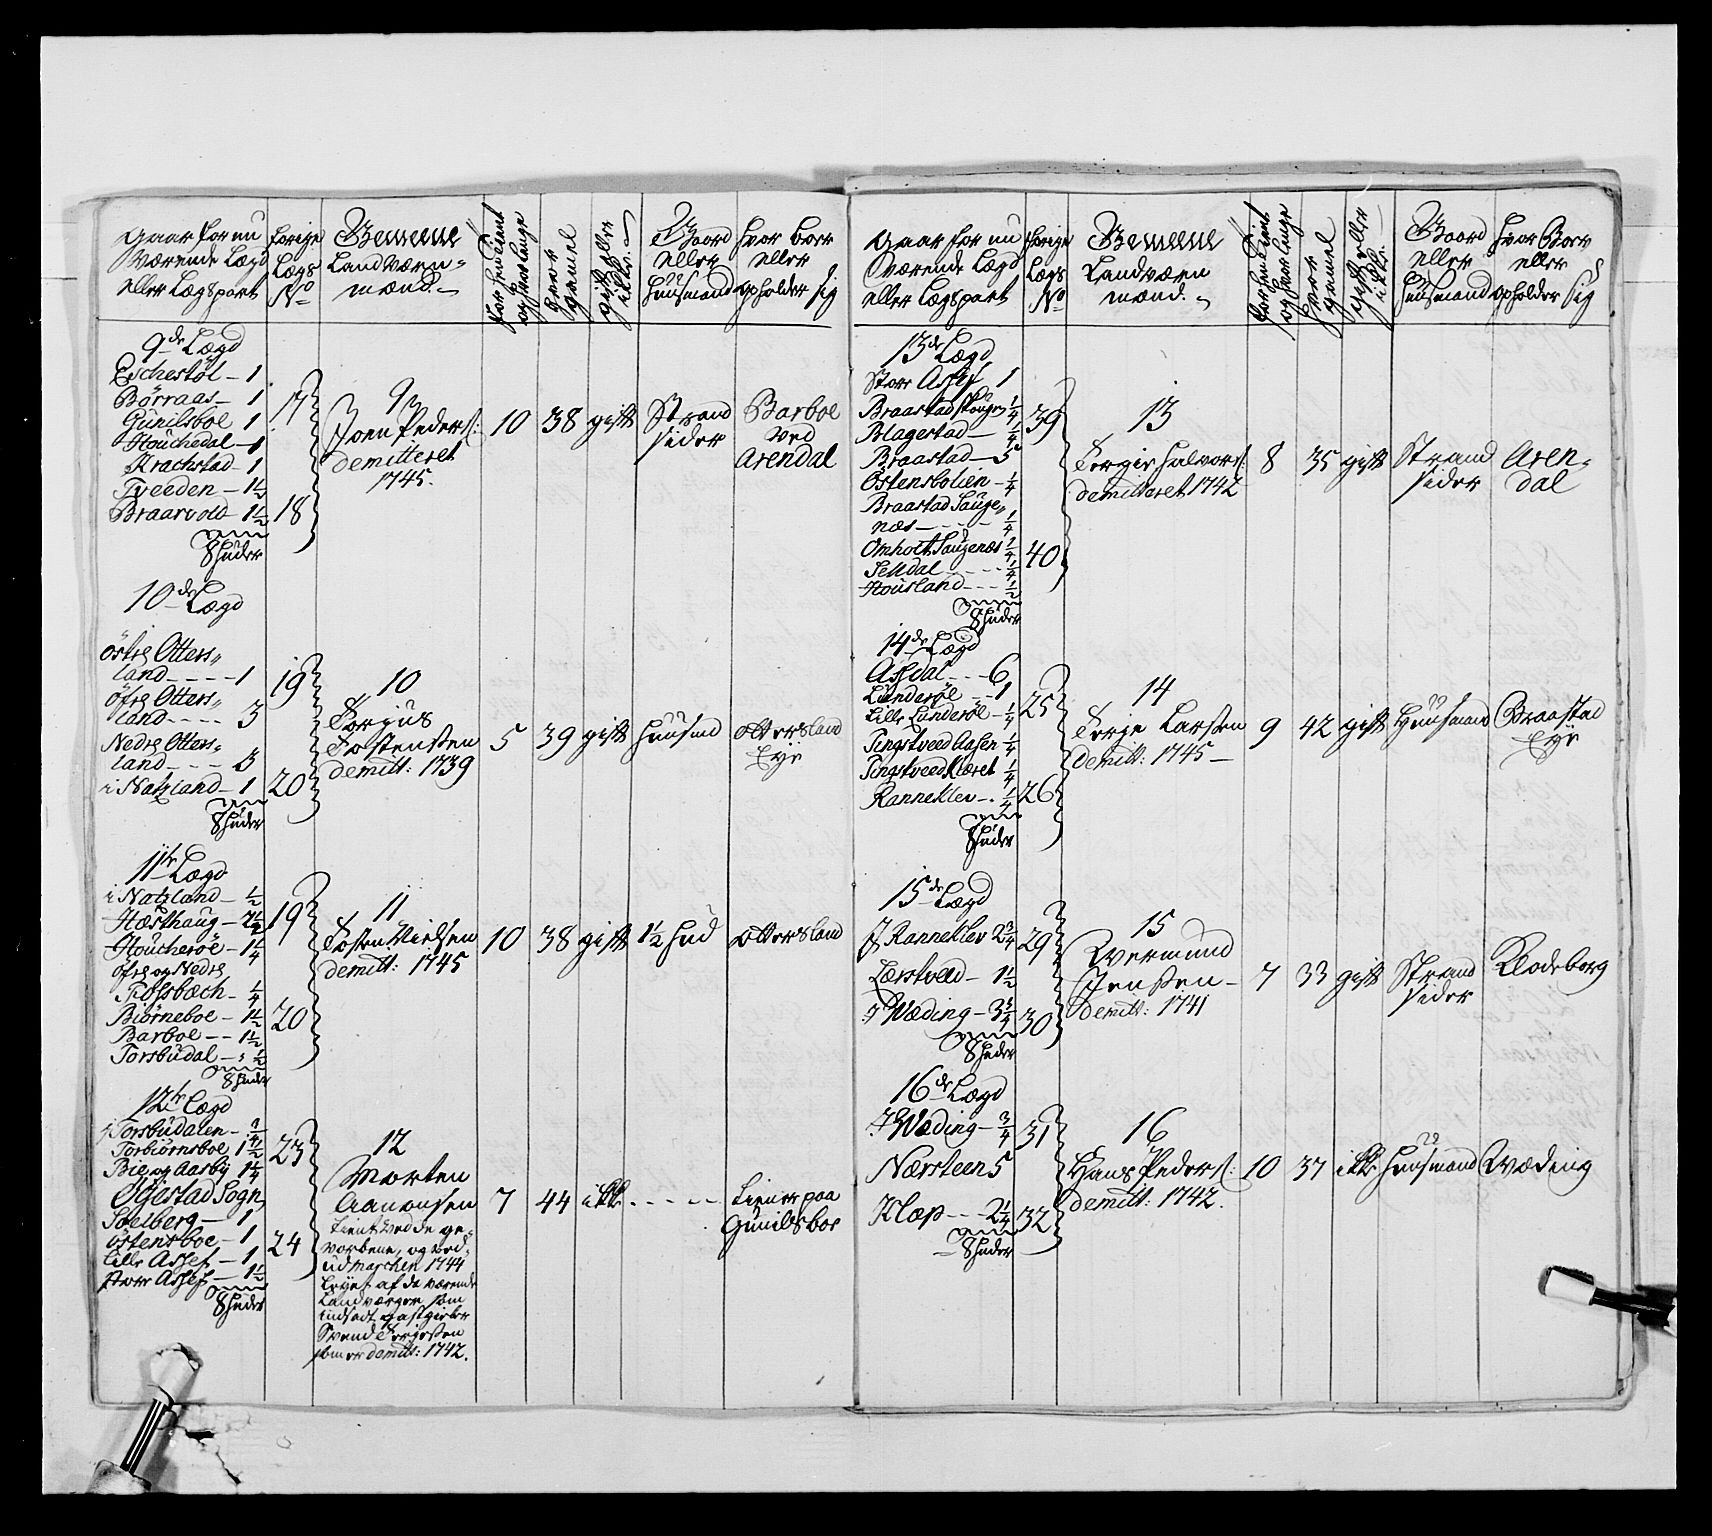 Gaar for nu
værende Lægd
eller Lægspart
forige
Lægs
No
Gemeene
Landværn-
mænd.
for hen Tient
og hvor lenge
Hvor
gamel
gift eller
ikke
Gaard
eller
Huusmand
hvor boer
eller
opholder sig
9de Lægd
Eschestøl - 1
Børraas - 1
Gunilsboe 1
Houchedal - 1
Krachstad - 1
Tveeden - 1½
Braarvold - 1½
8 huder
17
18
9
Joen Peders:
demitteret
1745.
10
38
gift
Strand
sider
Barboe
ved
Arendal
10de Lægd
östre Otters„
land - - - - 1
öfre Otters„
land - - - - 3
Nedre Otters„
land - - - 3
i Natzland - 1
8 huder
19
20
10
Torjus
Tostensen
demitt: 1739
5
39
gift
Huusmd
Ottersland
Eye
11te Lægd
i Natzland - ½
Hæsthaug - 2½
Houcheröe - 1¼
öfre og Nedre
Fiosbæch - ¼
Biörneboe - 1½
Barboe - - 1½
Torsbudal - - ½
8 huder
19
20
11
Tosten Nielsen
demitt: 1745
10
38
gift
1½ hud
Ottersland
12te Lægd
i Torsbudalen - ¾
Torbiörnsboe 1½
Bie og Aasby 1¼
Öjestad Sogn
Solberg - 1
östensboe - 1
Lille Assef - 1
store Assef - 1½
8 huder
23
24
12
Morten
Aanonsen
tient ved de ge-
vorbene, og ved
udmarchen 1744
Leyet af de værende
Landværgen som
indsadt gastgieber
Svend Terjesen
som er demitt: 1742.
7
44
ikke
Tiener paa
Gunildsboe
Gaar for nu
værende Lægd
eller Lægspart
forige
Lægs
No
Gemeene
Landværn
mænd.
for hen Tient
og hvor lenge
Hvor
gamel
gift eller
ikke
Gaard
eller
Huusmand
hvor Boer
eller
opholder sig
13de Lægd
Store Assef 1
Braastad skougen ¼
Blagestad - ¼
Braastad - 5
Östensbolien - ¼
Braastad Sauge„
næs - - - - ¼
Omholt Saugenæs ¼
Selldal - - - - ¼
Housland - - - ½
8 huder
39
40
13
Torgier Halvors:
demitteret 1742
8
35
gift
Strand
sider
Aren-
dal
14de Lægd
Assdal - - - 6
Lunderöe - - 1
Lille Lunderöe - ¼
Tingstveed Aasen ¼
Tingstveed Kiæret ¼
Ranneklev - . ¼
8 huder
25
26
14
Terje Larsen
demitt: 1745 -
9
42
gift
Huusmand
Braastad
Eye
15de Lægd
J Ranneklev 2¾
Lærstveed - 1½
J Wæding - 3¾
8 huder
29
30
15
Wermund
Jensen -
demitt: 1741
7
33
gift
Strand
sider
Klodeborg
16de Lægd
J Wæding - ¾
Næsteen 5
Klæp - - - 2¼
8 huder
31
32
16
Hans Peders:
demitt: 1742.
10
37
ikke
Huusmand
Wæding